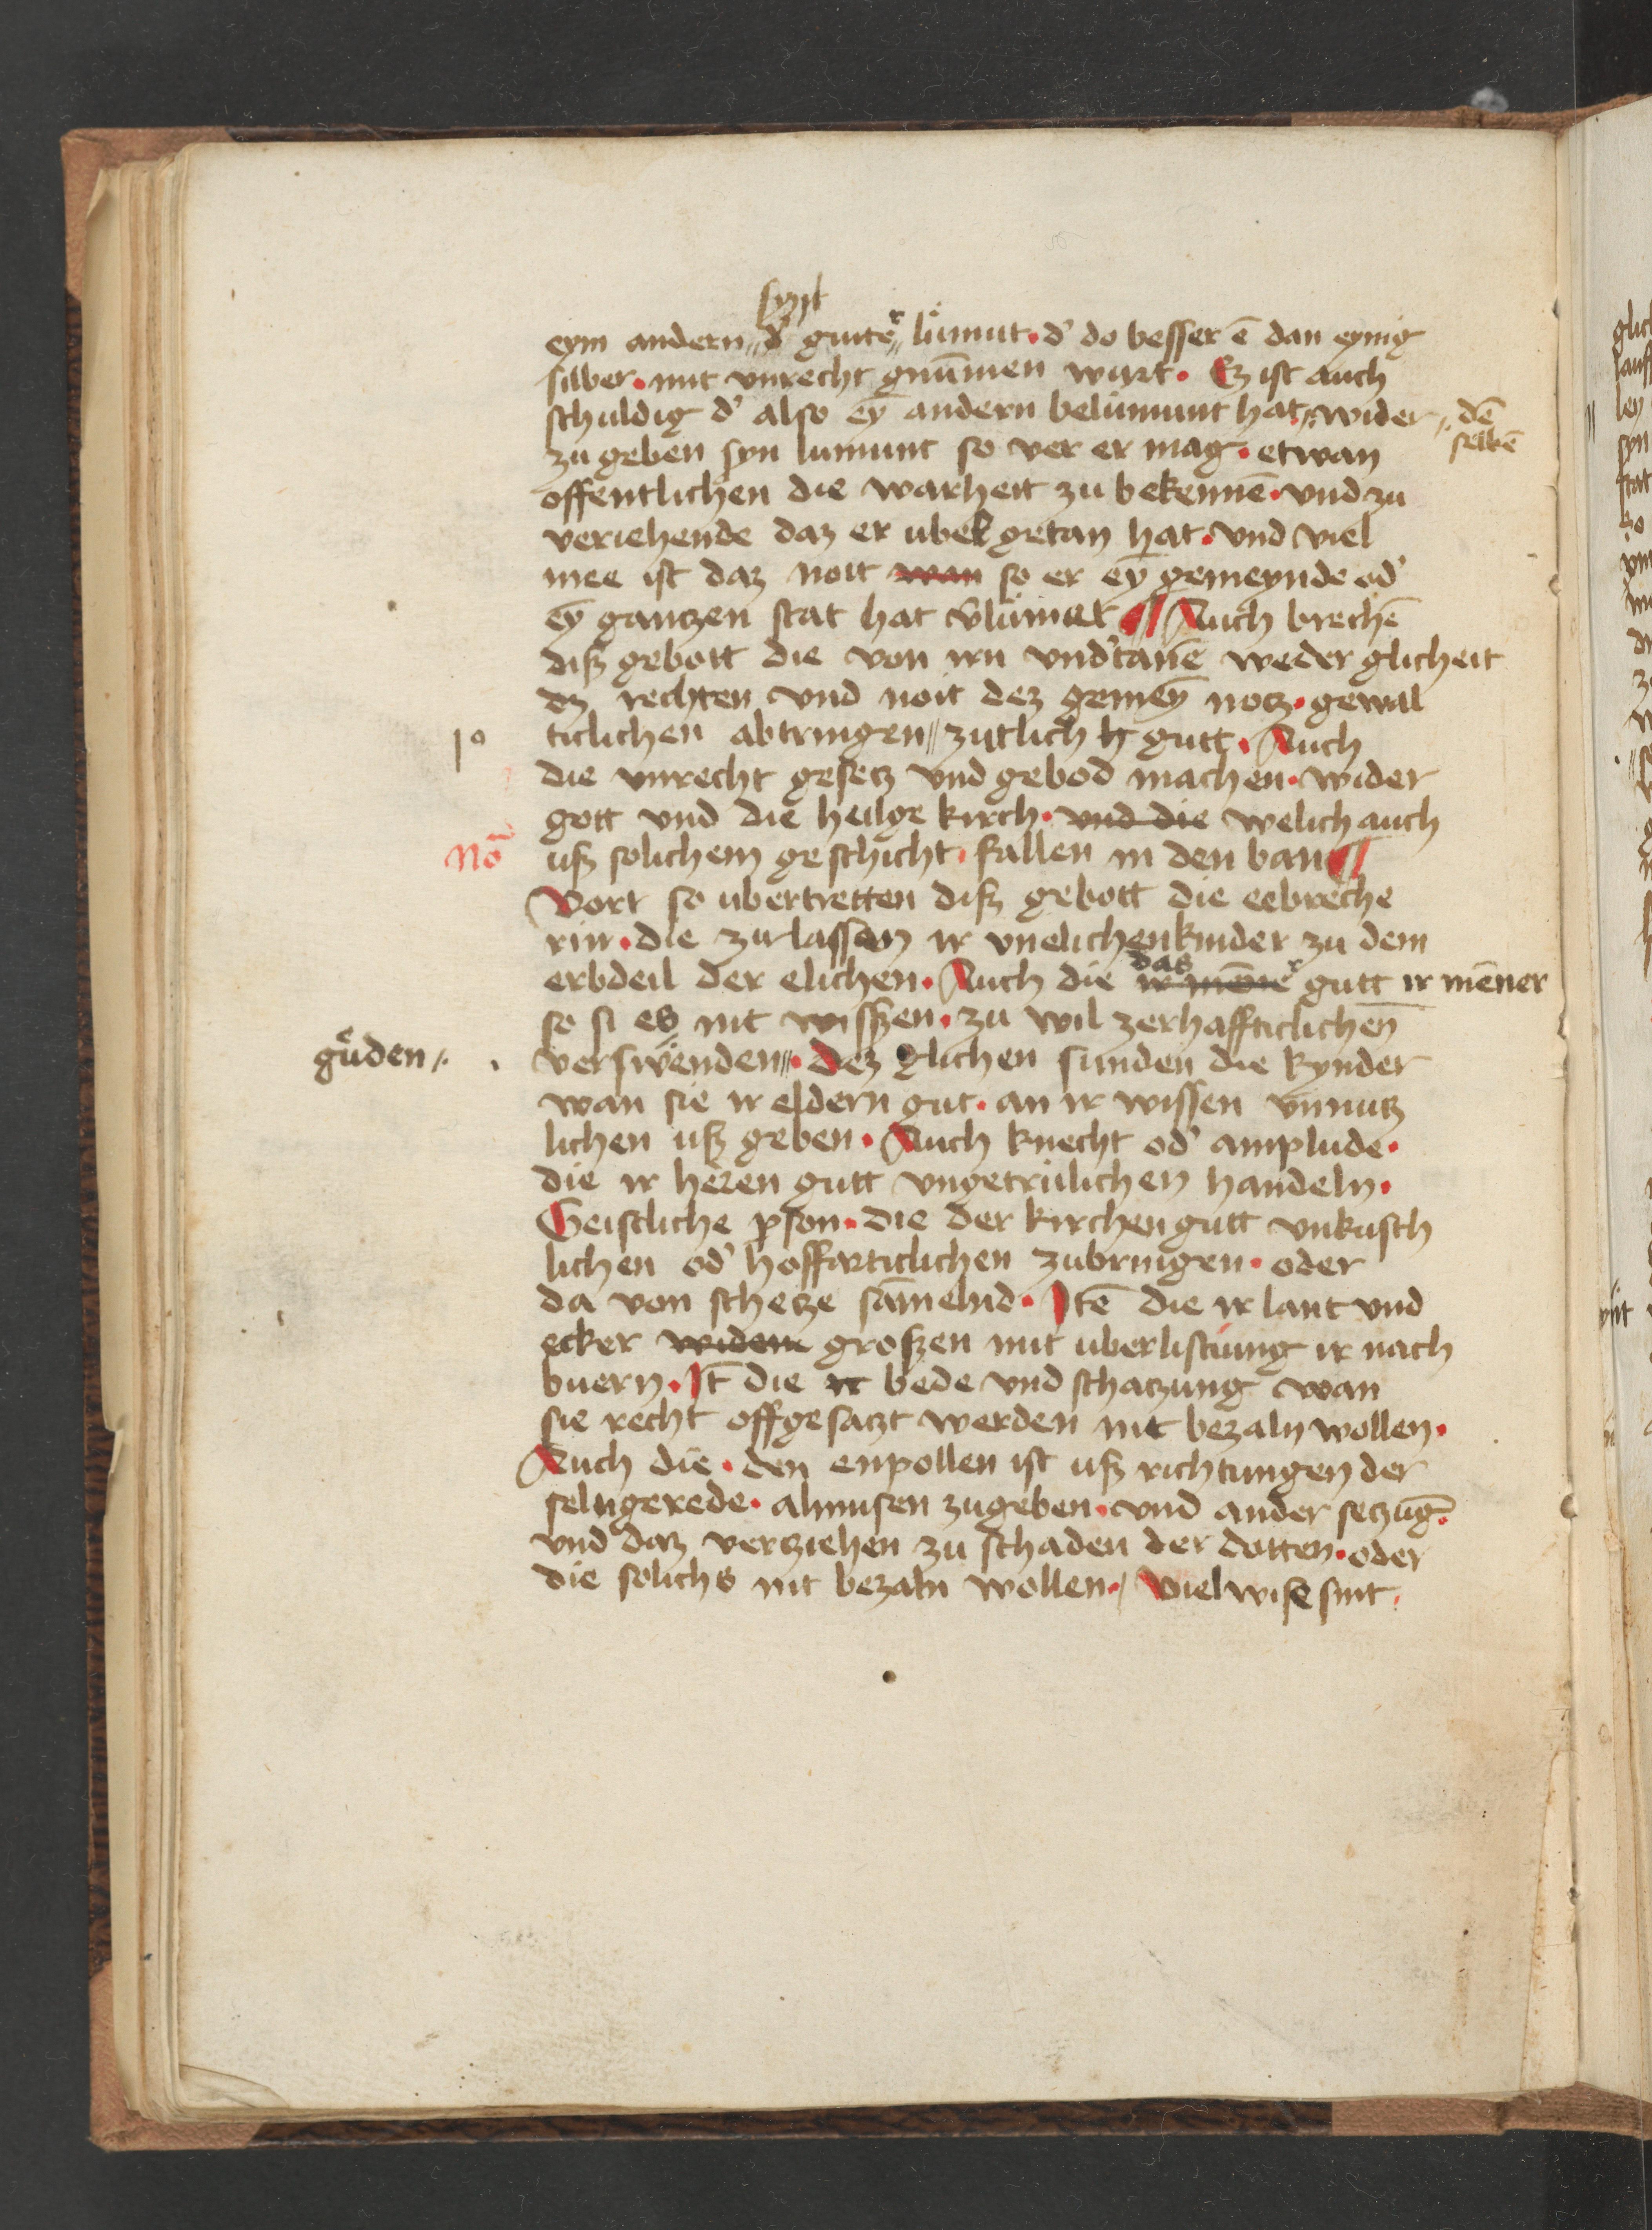 synt
eym andern d' guter lümut · d' do besser ē dan eynig
silber · mit vnrecht gnūmen wurt · Ez ist auch
schuldig d' also eȳ andern belumunt hat wider
dē selbē
zu geben syn lumunt so ver er mag · etwan
offentlichen die warheit zu bekennē · vnd zu
veriehende daz er ubel getan hat · vnd viel
mee ist daz noit wan so er eȳ gemeynde od'
eȳ gantzen stat hat v̄lümut ¶ Auch brechē
diß gebott die von irn vnd'tanē weder glicheit
dz rechten vnd noit dez gemeȳ notz · gewal
1º ticlichen abtringen zijtlich gutt · Auch
die vnrecht gesetz vnd gebod machen · wider
gott vnd die heilge kirch · vnd die welich auch
Nō uß solichem geschicht · fallen in den ban ¶
Vort so ubertretten diß gebott die eebreche
rin · die zu lassen ir vnelichen kinder zu dem
das
erbdeil der elichen · Auch die ir mēner gutt ir mēner
so si es nit wißzen · zu wil zerhafftichlichen
güden verswenden · Dez glichen sunden die kynder
wan sie ir eldern gut · an ir wissen vnnutz
lichen uß geben · Auch knecht od' amplude ·
die ir heren gutt vngetrülichen handeln ·
Geistliche pson · die der kirchen gutt vnkusch
lichen od' hoffarticlichen zubringen · oder
da von schetze sāmelnd · Itē die ir lant vnd
ecker widem großen mit uberlistung ir nach
buern · It̄ die ir bede vnd schatzung wan
sie recht offgesatzt werden nit bezaln wollen ·
Auch die · den enpollen ist uß richtungen der
selngerede · almusen zu geben · vnd ander setzūg ·
vnd daz verziehen zu schaden der dotten · oder
die solichs nit bezaln wollen · Viel wise sint ·